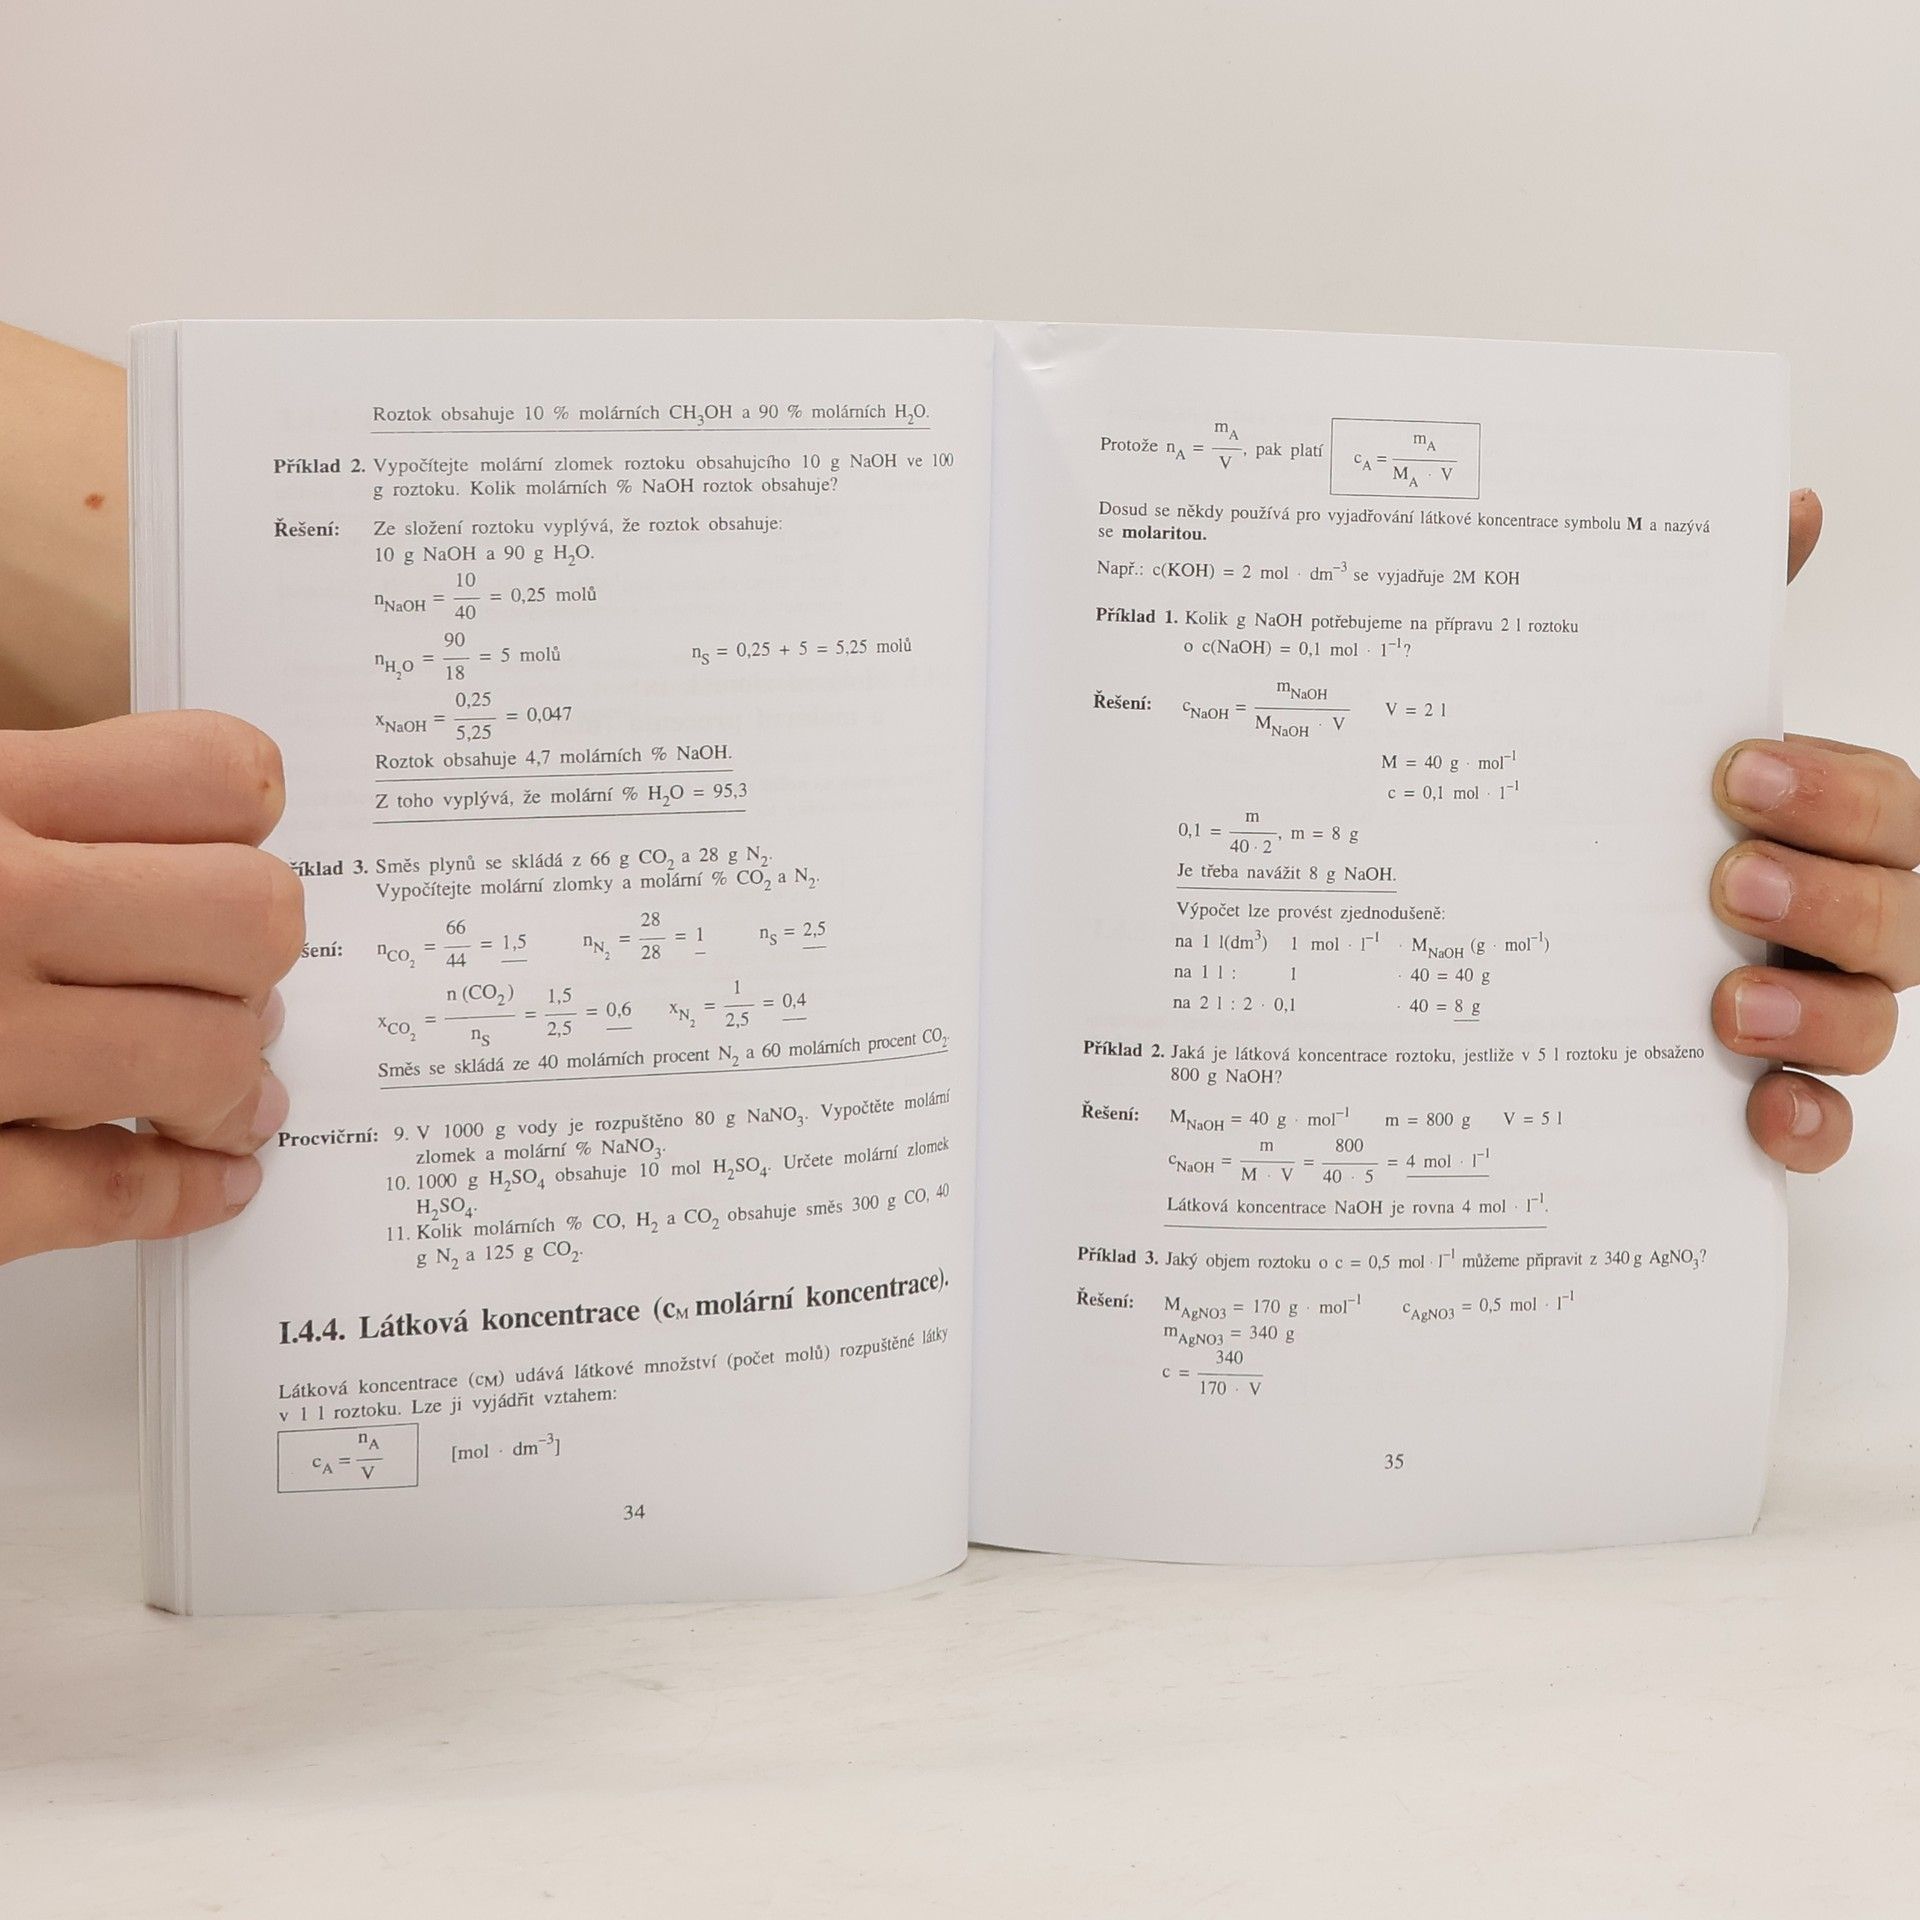 Roztok obsahuje 10 % molárních CH₃OH a 90 % molárních H₂O.
Příklad 2. Vypočítejte molární zlomek roztoku obsahujcího 10 g NaOH ve 100
g roztoku. Kolik molárních % NaOH roztok obsahuje?
Řešení: Ze složení roztoku vyplývá, že roztok obsahuje:
10 g NaOH a 90 g H₂O.
n_NaOH = 10/40 = 0,25 molů
n_H₂O = 90/18 = 5 molů n_S = 0,25 + 5 = 5,25 molů
x_NaOH = 0,25/5,25 = 0,047
Roztok obsahuje 4,7 molárních % NaOH.
Z toho vyplývá, že molární % H₂O = 95,3
íklad 3. Směs plynů se skládá z 66 g CO₂ a 28 g N₂.
Vypočítejte molární zlomky a molární % CO₂ a N₂.
šení: n_CO₂ = 66/44 = 1,5 n_N₂ = 28/28 = 1 n_S = 2,5
x_CO₂ = n (CO₂)/n_S = 1,5/2,5 = 0,6 x_N₂ = 1/2,5 = 0,4
Směs se skládá ze 40 molárních procent N₂ a 60 molárních procent CO₂.
Procvičrní: 9. V 1000 g vody je rozpuštěno 80 g NaNO₃. Vypočtěte molární
zlomek a molární % NaNO₃.
10. 1000 g H₂SO₄ obsahuje 10 mol H₂SO₄. Určete molární zlomek
H₂SO₄.
11. Kolik molárních % CO, H₂ a CO₂ obsahuje směs 300 g CO, 40
g N₂ a 125 g CO₂.
I.4.4. Látková koncentrace (c_M molární koncentrace).
Látková koncentrace (c_M) udává látkové množství (počet molů) rozpuštěné látky
v 1 l roztoku. Lze ji vyjádřit vztahem:
c_A = n_A/V [mol · dm⁻³]
34
Protože n_A = m_A/V, pak platí c_A = m_A/(M_A · V)
Dosud se někdy používá pro vyjadřování látkové koncentrace symbolu M a nazývá
se molaritou.
Např.: c(KOH) = 2 mol · dm⁻³ se vyjadřuje 2M KOH
Příklad 1. Kolik g NaOH potřebujeme na přípravu 2 l roztoku
o c(NaOH) = 0,1 mol · l⁻¹?
Řešení: c_NaOH = m_NaOH/(M_NaOH · V) V = 2 l
M = 40 g · mol⁻¹
c = 0,1 mol · l⁻¹
0,1 = m/(40 · 2), m = 8 g
Je třeba navážit 8 g NaOH.
Výpočet lze provést zjednodušeně:
na 1 l(dm³) 1 mol · l⁻¹ · M_NaOH (g · mol⁻¹)
na 1 l : 1 · 40 = 40 g
na 2 l : 2 · 0,1 · 40 = 8 g
Příklad 2. Jaká je látková koncentrace roztoku, jestliže v 5 l roztoku je obsaženo
800 g NaOH?
Řešení: M_NaOH = 40 g · mol⁻¹ m = 800 g V = 5 l
c_NaOH = m/(M · V) = 800/(40 · 5) = 4 mol · l⁻¹
Látková koncentrace NaOH je rovna 4 mol · l⁻¹.
Příklad 3. Jaký objem roztoku o c = 0,5 mol · l⁻¹ můžeme připravit z 340 g AgNO₃?
Řešení: M_AgNO3 = 170 g · mol⁻¹ c_AgNO3 = 0,5 mol · l⁻¹
m_AgNO3 = 340 g
c = 340/(170 · V)
35